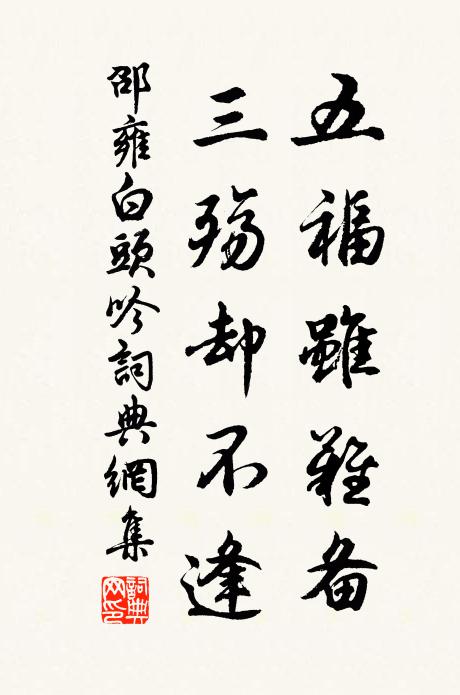 五福雖難备
三殤却不逢
邵雍白頭吟詞典網集
詞典网印